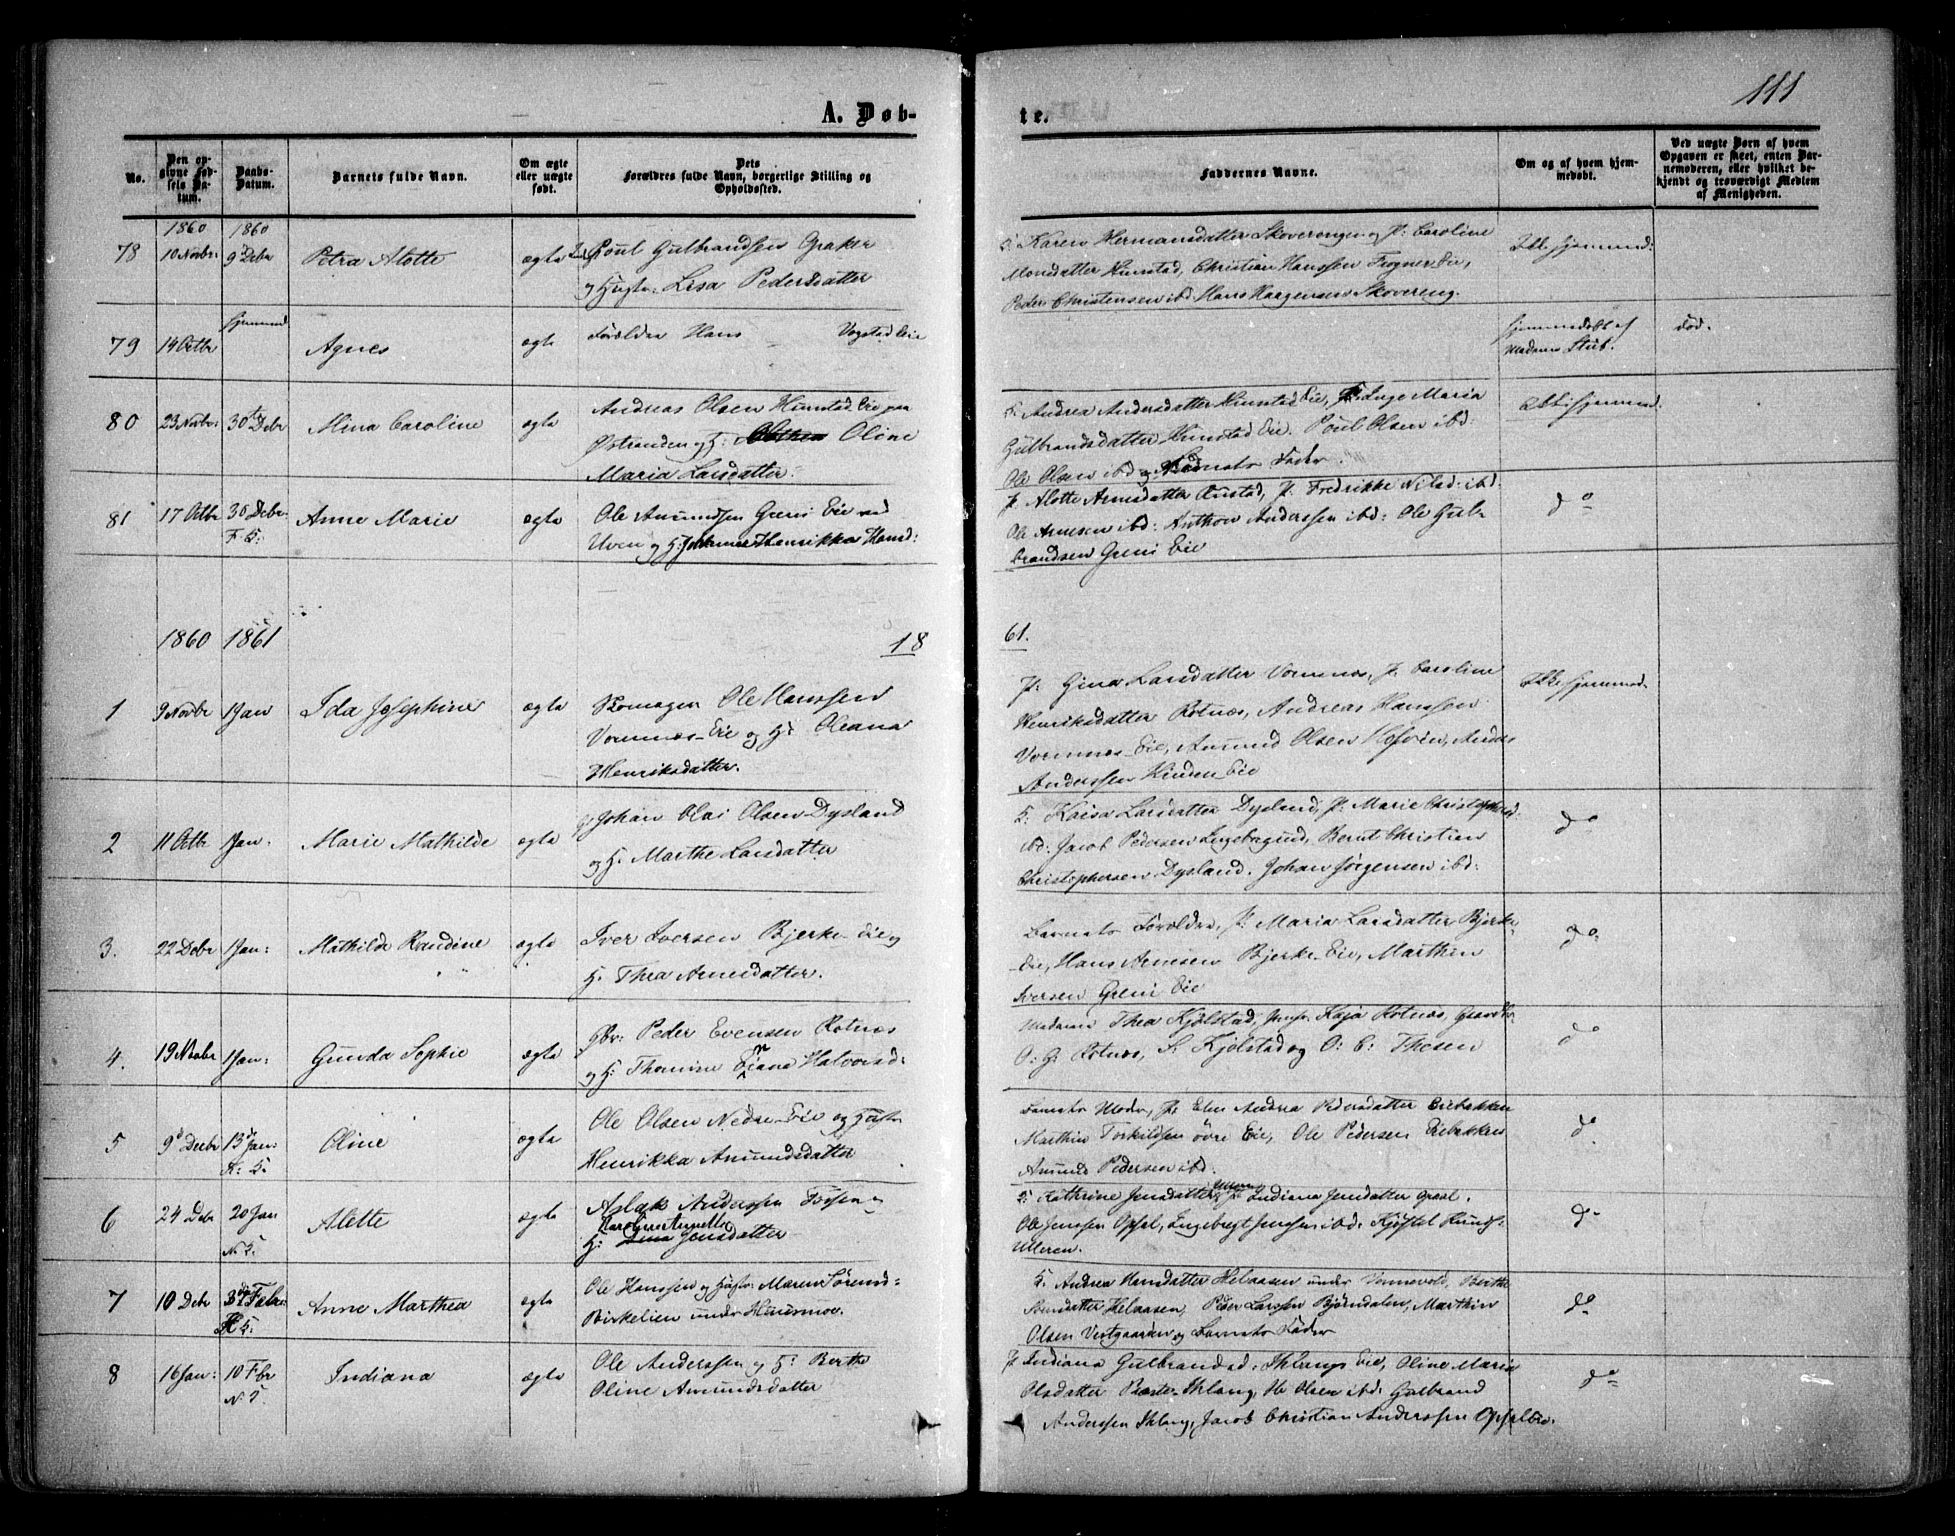 111
A. Døb-
te.
No.
Den op-
givne Fød-
sels Da-
tum.
Daabs-
Datum.
Barnets fulde Navn.
Om ægte
eller uægte
født.
Dets
Forældres fulde Navn, borgerlige Stilling og
Opholdssted.
Faddernes Navne.
Om og af hvem hjem-
medøbt.
Ved uægte Børn af hvem
Opgaven er skeet, enten Bar-
nemoderen, eller hvilket be-
kjendt og troværdigt Medlem
af Menigheden.
1860 1860
78 10 Novbr: 9d Debr Petra Alotte ægte Poul Gulbrandsen
og Hugtr: Lisa Pedersdatter
K: Karen Hermansdatter Skoverengen og P: Caroline
Monsdatter Himstad, Christian Hanssen Frogner Eie,
Peder Christensen ibd. Hans Haagensen Skovereng.
Ikke hjemmed:
79 14 Octbr hjemmed Agnes ægte Forældre Hans Vogstad Eie
hjemmedøbt af
Madame Stub.
død.
80 23 Novbr: 30te Debr Mina Caroline ægte Andreas Olsen Himstad Eie paa
Østranden og H: Oline
Maria Larsdatter.
K: Andrea Andersdatter Himstad Eie, P: Inge Maria
Gulbrandsdatter Himstad Eie. Poul Olsen ibd:
Ole Olsen ibd og Barnets Fader.
Ikke hjemmed.
81 17 Octbr 30 Debr F. K: Anne Marie ægte Ole Amundsen Greni Eie ved
Uven og H: Johanne Henrikke Hansd:
P: Alotte Arnesdatter Rustad, P: Fredrikke Nilsd. ibd.
Ole Arnesen ibd: Anthon Anderssen ibd: Ole Gul-
brandsen Greni Eie
do
1860 1861
18
61.
1 9 Novbr 1 Jan Ida Josephine ægte Skomager Ole Hanssen
Vormnæs-Eie og H: Oleana
Henriksdatter.
P: Gina Larsdatter Vormnæs, P: Caroline
Henriksdatter Rotnæs, Andreas Hanssen
Vormnæs-Eie, Amund Olsen Hofvin, Anders
Anderssen Eie
Ikke hjemmed.
2 11 Octbr 1 Jan: Marie Mathilde ægte Johan Olai Olsen Dysland
og H. Marthe Larsdatter
K: Kaisa Larsdatter Dysland, P: Marie Christophersd.
ibd: Jacob Pedersen Bernt Christian
Christophersen Dysland. Johan Jørgensen ibd:
do
3. 22 Debr 1 Jan: Mathilde Randine ægte Iver Iversen Bjerke-Eie og
H. Thea Arnesdatter.
Barnets Forældre, P: Maria Larsdatter Bjerke-
Eie, Hans Arnesen Bjerke-Eie, Marthin
Iversen Greni Eie
do
4. 19 Novbr 1 Jan: Gunda Sophie ægte Gbr: Peder Evensen Rotnæs
og H: Thomine Halvorsd:
Madame Thea Kjølstad, Jmfr. Kaja Rotnæs,
O: G: Rotnæs, S: Kjølstad og O: C: Thesen
do
5 9d Decbr 13d Jan: K: Oline ægte Ole Olsen Nedre-Eie og Hust:
Henrikka Amundsdatter
Barnets Moder, P: Elen Andrea Pedersdatter Eiebakken
Marthin Torkildsen øvre Eie, Ole Pedersen Eiebakken
Amund Pedersen ibd.
do
6 24 Debr 20 Jan N. K. Alette ægte Aslak Anderssen
Karoline Annette
H: Jensdatter
K: Kathrine Jensdatter P: Indiana Jensdatter Opsal.
Ole Jenssen Opsal, Engebregt Jenssen ibd: Kjøstel
Ulleren.
do
7 10 Debr 3die Febr: Anne Marthea ægte Ole Hanssen og Hust: Maren Sørensd:
Birkelien under Huusmoe.
K: Andrea Hansdatter Helaasen under Berthe
Helaasen, Peder Larssen Bjørndalen, Marthin
Olsen Vestgaarden og Barnets Fader
do
8 16 Jan: 10 Fbr N. K. Indiana ægte Ole Anderssen og H: Berthe
Oline Amundsdatter
P. Indiana Gulbrandsd: Eie, Oline Maria
Olsdatter Ole Olsen ibd: Gulbrand
Anderssen Jacob Christian Anderssen
do